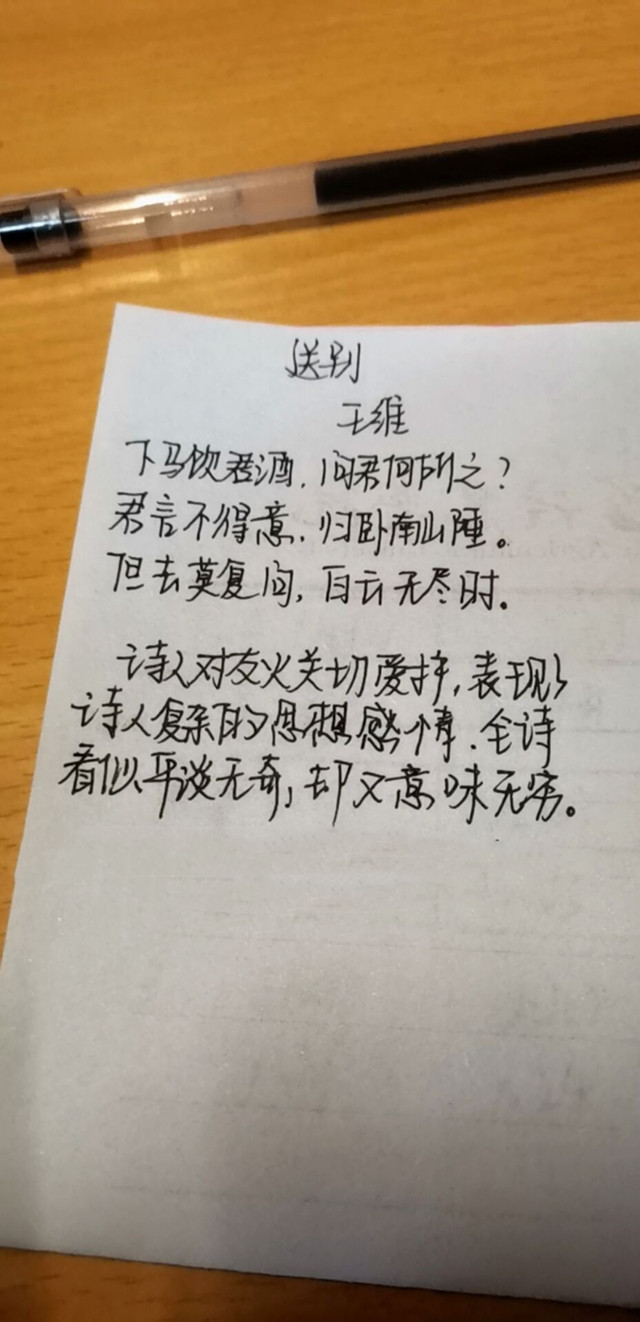 送别
王维
下马饮君酒,问君何所之?
君言不得意,归卧南山陲。
但去莫复问,白云无尽时。
诗人对友人关切爱护,表现了
诗人复杂的思想感情.全诗
看似平淡无奇,却又意味无穷。